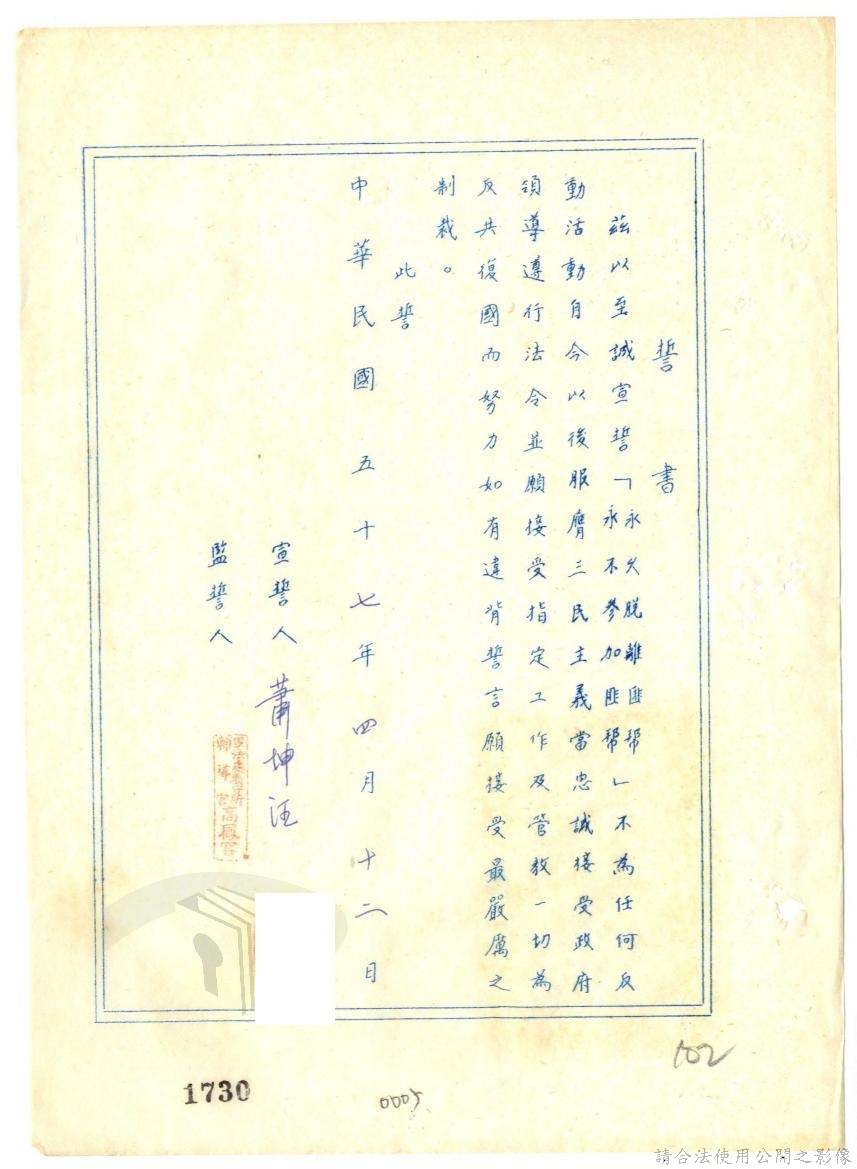 誓書
茲以至誠宣誓「永久脫離匪幫 永不參加匪幫」不為任何反
動活動自今以後服膺三民主義當忠誠接受政府
領導遵行法令並願接受指定工作及管教一切為
反共復國而努力如有違背誓言願接受最嚴厲之
制裁。
此誓
中華民國五十七年四月十二日
宣誓人 蕭坤汪
監誓人
輔導官高鳳官
102
1730
0005
請合法使用公開之影像